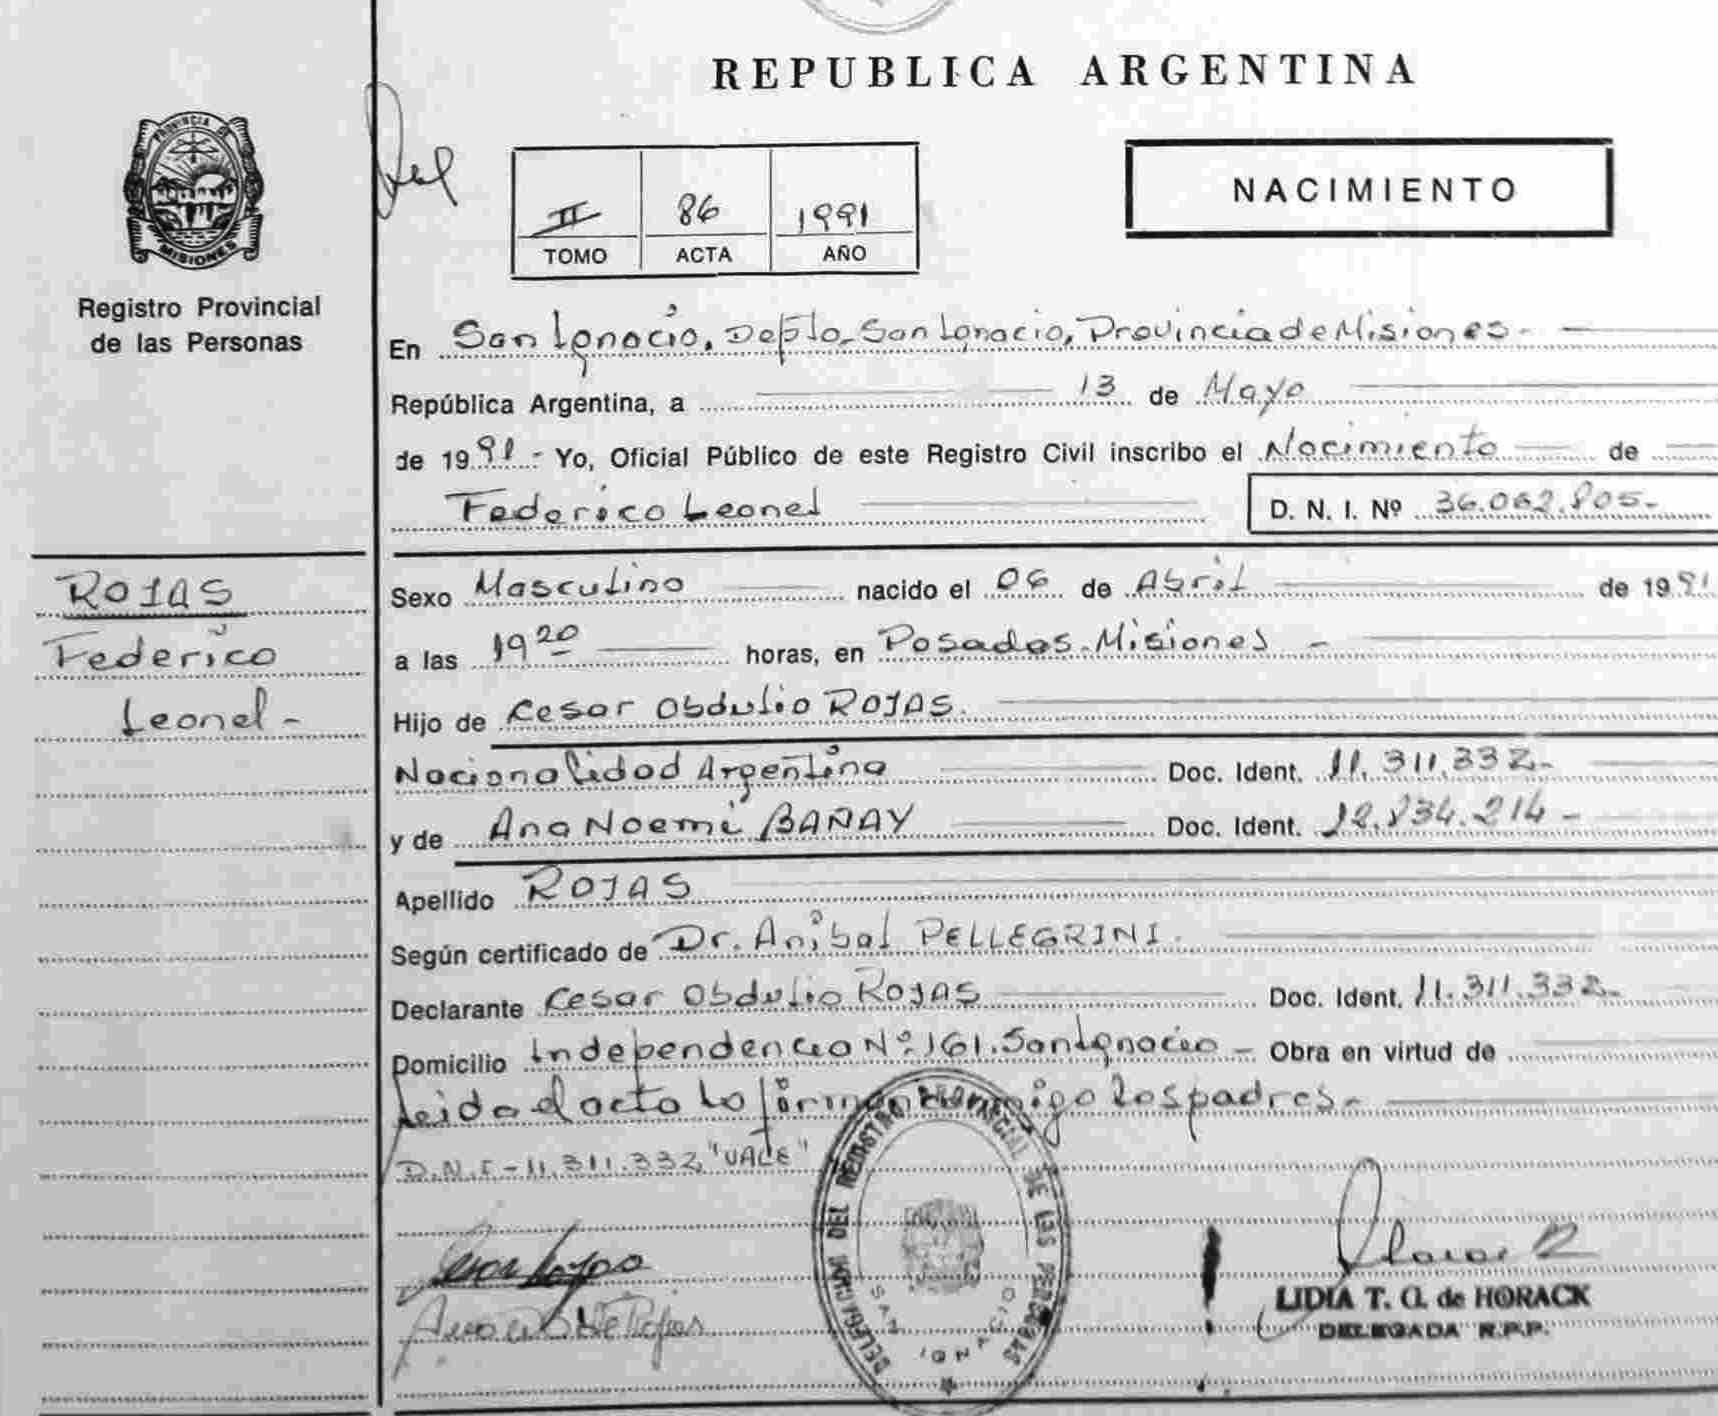 REPUBLICA ARGENTINA
PROVINCIA DE
MISIONES
Registro Provincial
de las Personas
II 86 1991
TOMO ACTA AÑO
NACIMIENTO
En San Ignacio, Depto. San Ignacio, Provincia de Misiones.-
República Argentina, a 13 de Mayo
de 1991.- Yo, Oficial Público de este Registro Civil inscribo el Nacimiento de
Federico Leonel D. N. I. Nº 36.062.805.-
ROJAS
Federico
Leonel -
Sexo Masculino nacido el 06 de Abril de 1991
a las 19 20 horas, en Posadas-Misiones -
Hijo de Cesar Obdulio ROJAS.
Nacionalidad Argentina Doc. Ident. 11.311.332.-
y de Ana Noemi BAÑAY Doc. Ident. 12.834.214 -
Apellido ROJAS
Según certificado de Dr. Anibal PELLEGRINI.
Declarante Cesar Obdulio ROJAS Doc. Ident. 11.311.332.-
Domicilio Independencia Nº 161. San Ignacio - Obra en virtud de
Leida el acta la firman conmigo los padres.-
D.N.I - 11.311.332 "VALE"
DELEGACION DEL REGISTRO PROVINCIAL DE LAS PERSONAS
SAN IGNACIO
LIDIA T. G. de HORACK
DELEGADA R.P.P.